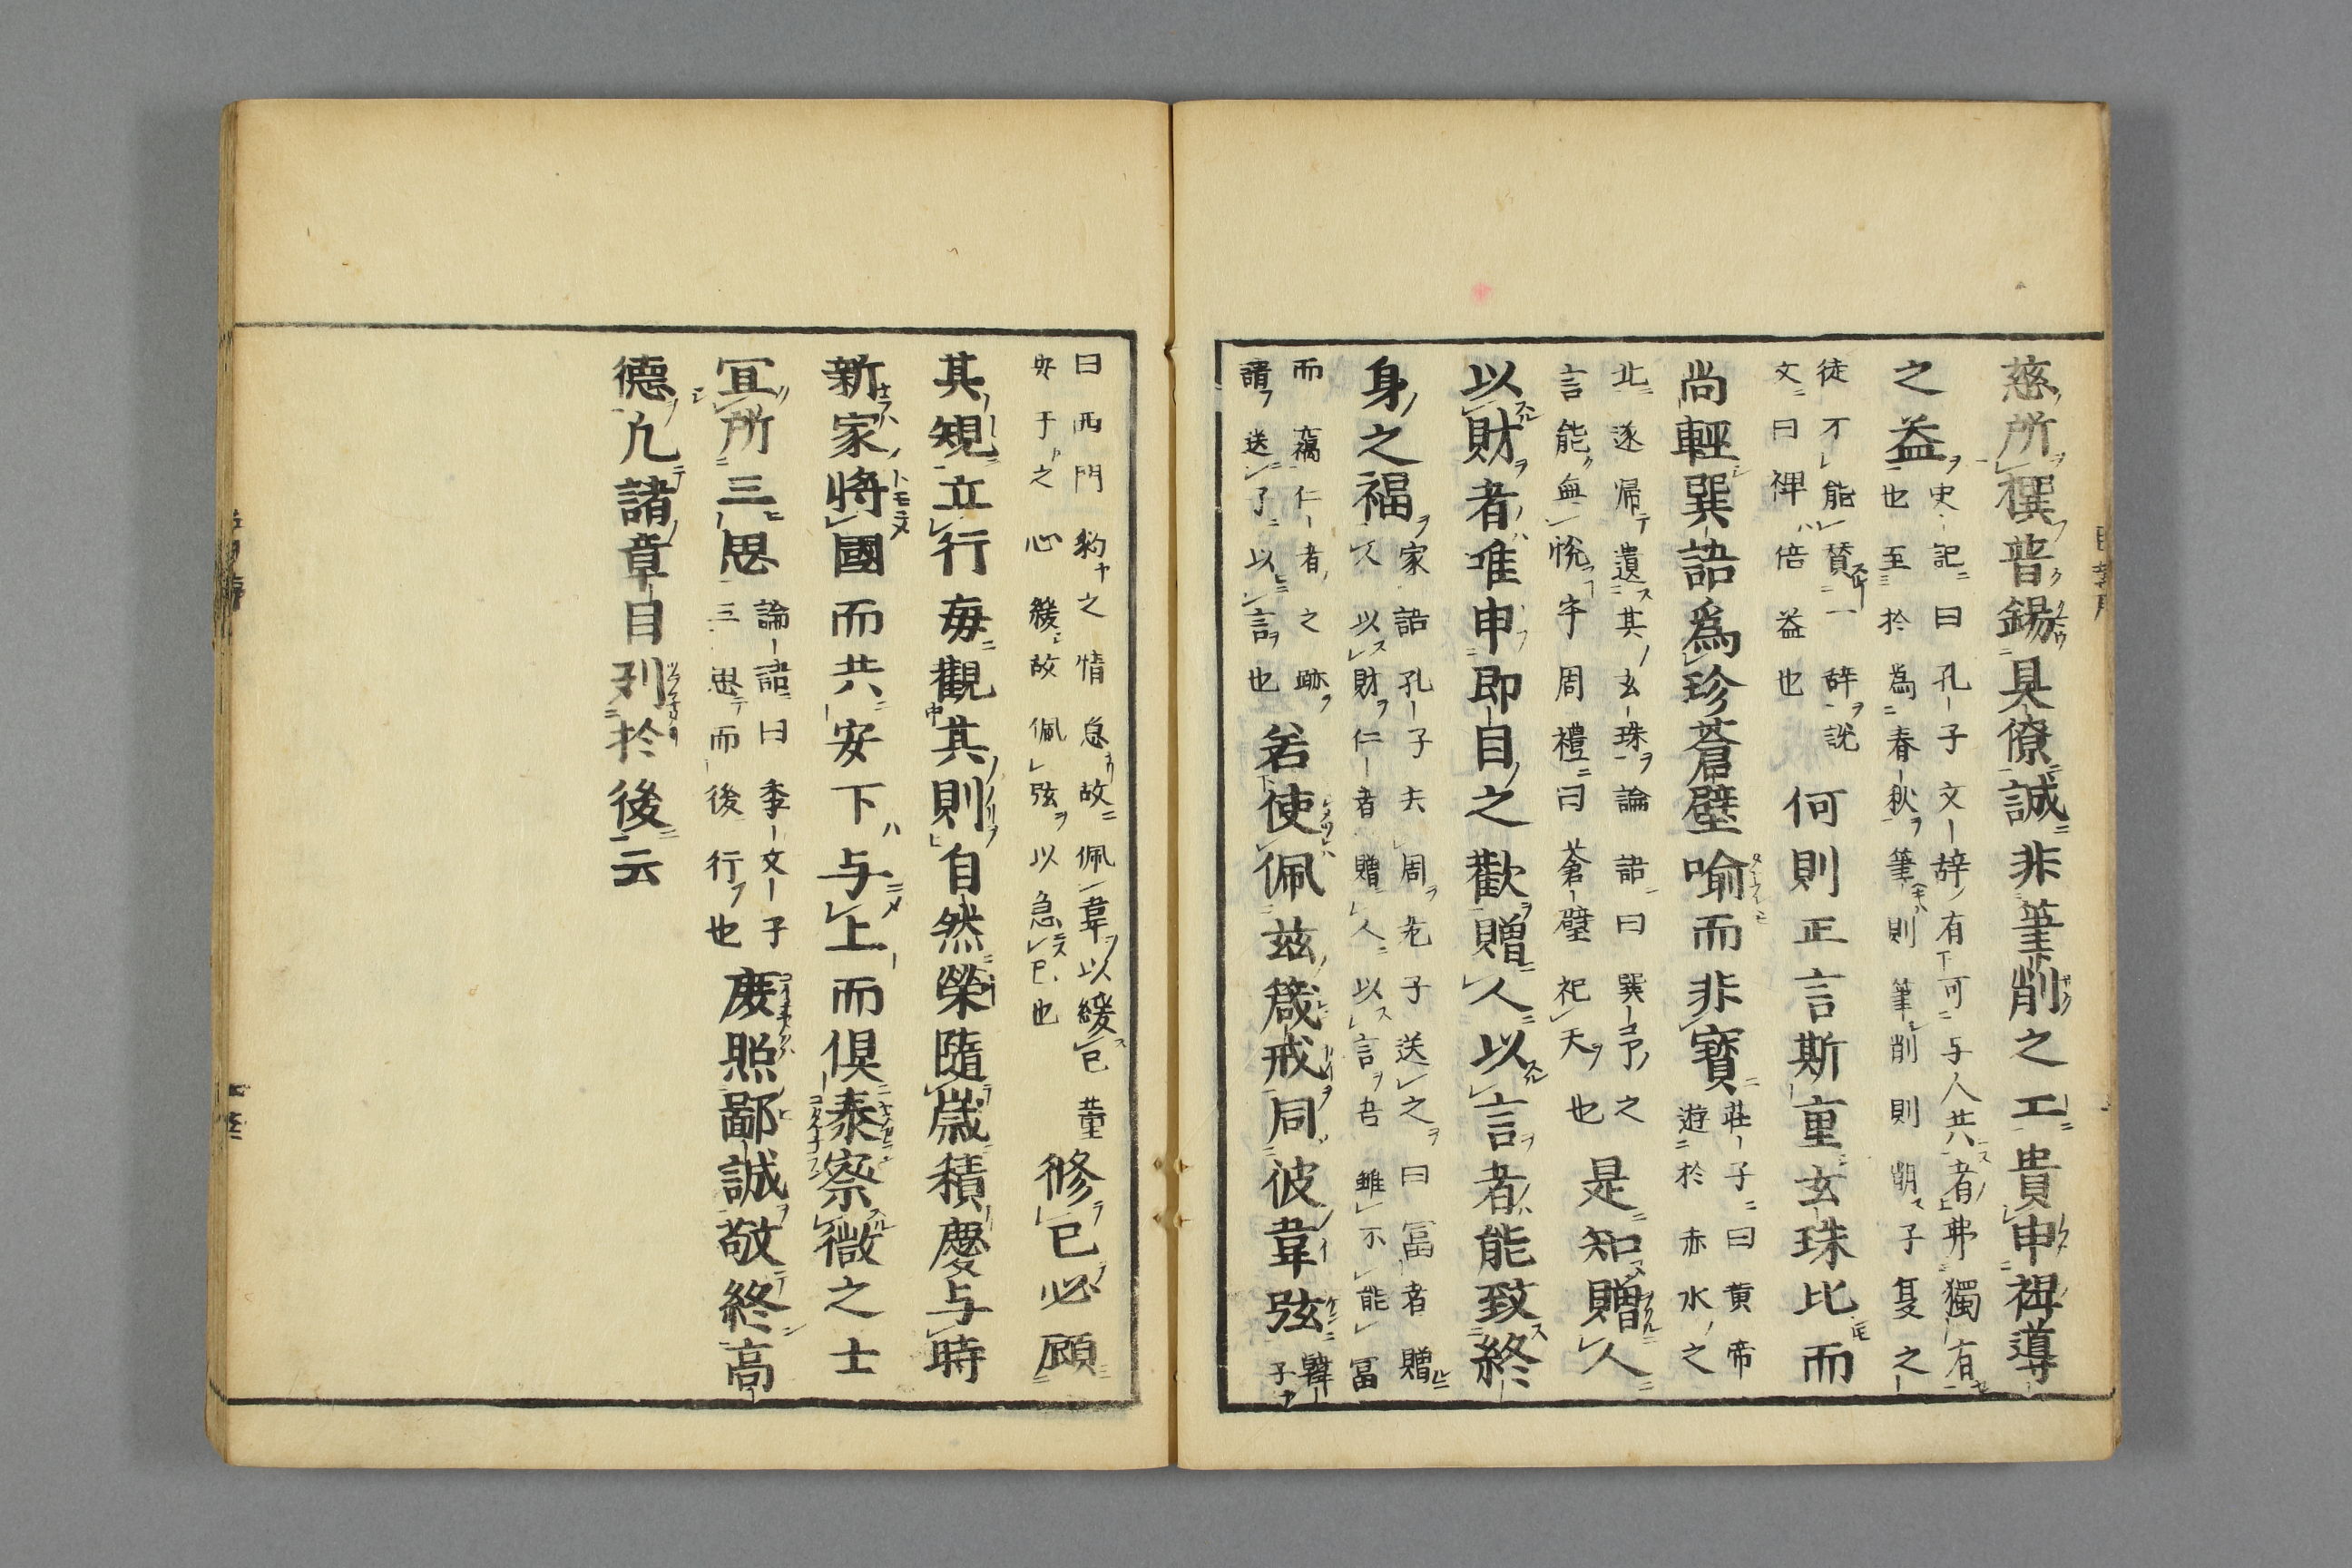 慈所撰普錫具僚誠非筆削之工貴申裨導
之益
史記曰孔子文辞有可与人共者弗獨有
也至於爲春秋筆則筆削則削子夏之
徒不能賛一辞説
文曰裨倍益也
何則正言斯重玄珠比而
尚輕巽語爲珍蒼璧喻而非寳
莊子曰黄帝
遊於赤水之
北遂帰遺其玄珠論語曰巽与之
言能無悦乎周禮曰蒼璧祀天也
是知贈人
以財者唯申即目之歡贈人以言者能致終
身之福
家語孔子去周老子送之曰冨者贈
人以財仁者贈人以言吾雖不能冨
而竊仁者之跡
請送子以言也
若使佩兹箴戒同彼韋弦
韓子
曰西門豹之情急故佩韋以緩己董
安于之心緩故佩弦以急己也
修己必顧
其規立行毎觀其則自然榮隨歳積慶与時
新家將國而共安下与上而倶泰察微之士
冝所三思
論語曰季文子
三思而後行也
庶照鄙誠敬終高
德凢諸章目列於後云